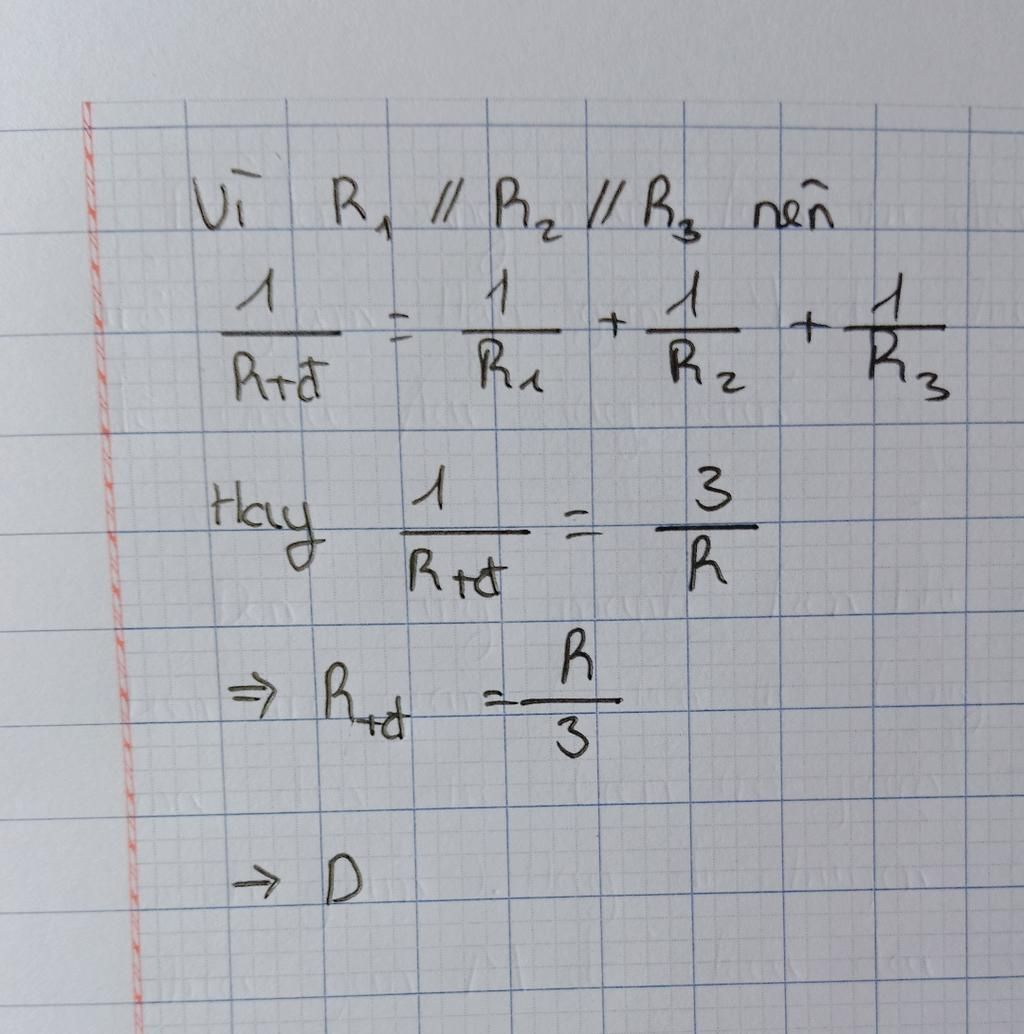 Vì R₁ // R₂ // R₃ nên
1/Rtđ = 1/R₁ + 1/R₂ + 1/R₃
Hay 1/Rtđ = 3/R
⇒ Rtđ = R/3
→ D